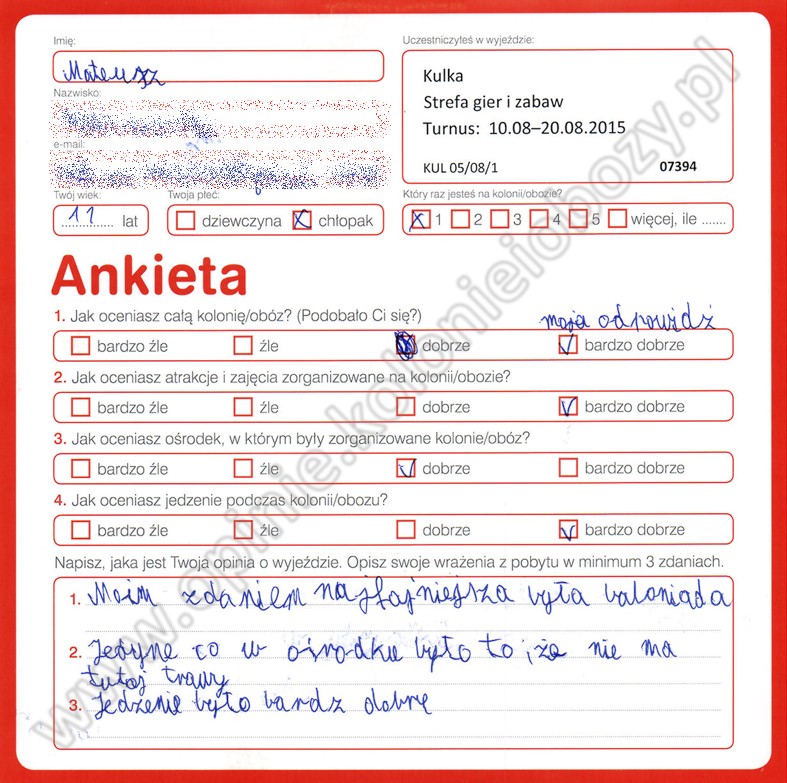 Imię:
Mateusz
Nazwisko:
e-mail:
Twój wiek:
11 lat
Twoja płeć:
dziewczyna chłopak
Uczestniczyłeś w wyjeździe:
Kulka
Strefa gier i zabaw
Turnus: 10.08–20.08.2015
KUL 05/08/1 07394
Który raz jesteś na kolonii/obozie?
1 2 3 4 5 więcej, ile .......
Ankieta
1. Jak oceniasz całą kolonię/obóz? (Podobało Ci się?)
moja odpowidź
bardzo źle źle dobrze bardzo dobrze
2. Jak oceniasz atrakcje i zajęcia zorganizowane na kolonii/obozie?
bardzo źle źle dobrze bardzo dobrze
3. Jak oceniasz ośrodek, w którym były zorganizowane kolonie/obóz?
bardzo źle źle dobrze bardzo dobrze
4. Jak oceniasz jedzenie podczas kolonii/obozu?
bardzo źle źle dobrze bardzo dobrze
Napisz, jaka jest Twoja opinia o wyjeździe. Opisz swoje wrażenia z pobytu w minimum 3 zdaniach.
1. Moim zdaniem najfajniejsza była baloniada
2. Jedyne co w ośrodku było to, że nie ma
tutaj trawy
3. Jedzenie było bardz dobrę
www.opinie.kolonieiobozy.pl